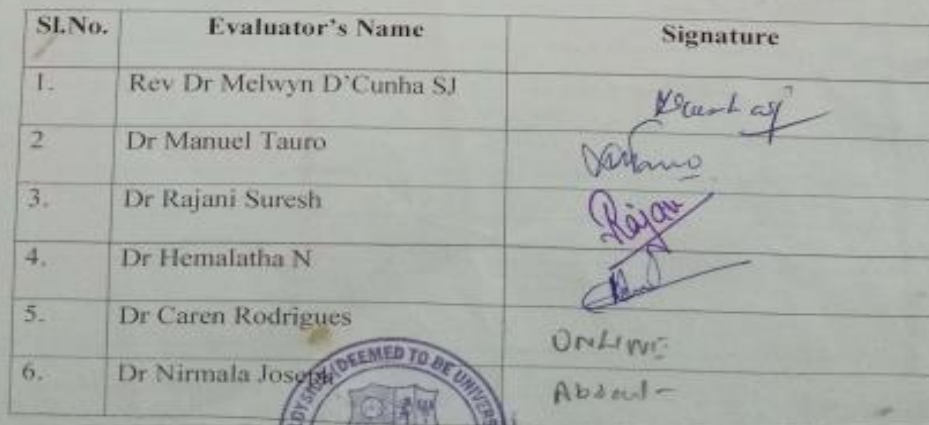 Sl.No. Evaluator's Name Signature
1. Rev Dr Melwyn D'Cunha SJ
2 Dr Manuel Tauro
3. Dr Rajani Suresh Rajani
4. Dr Hemalatha N
5. Dr Caren Rodrigues ONLINE
6. Dr Nirmala Joseph Absent
(DEEMED TO BE UNIVERS